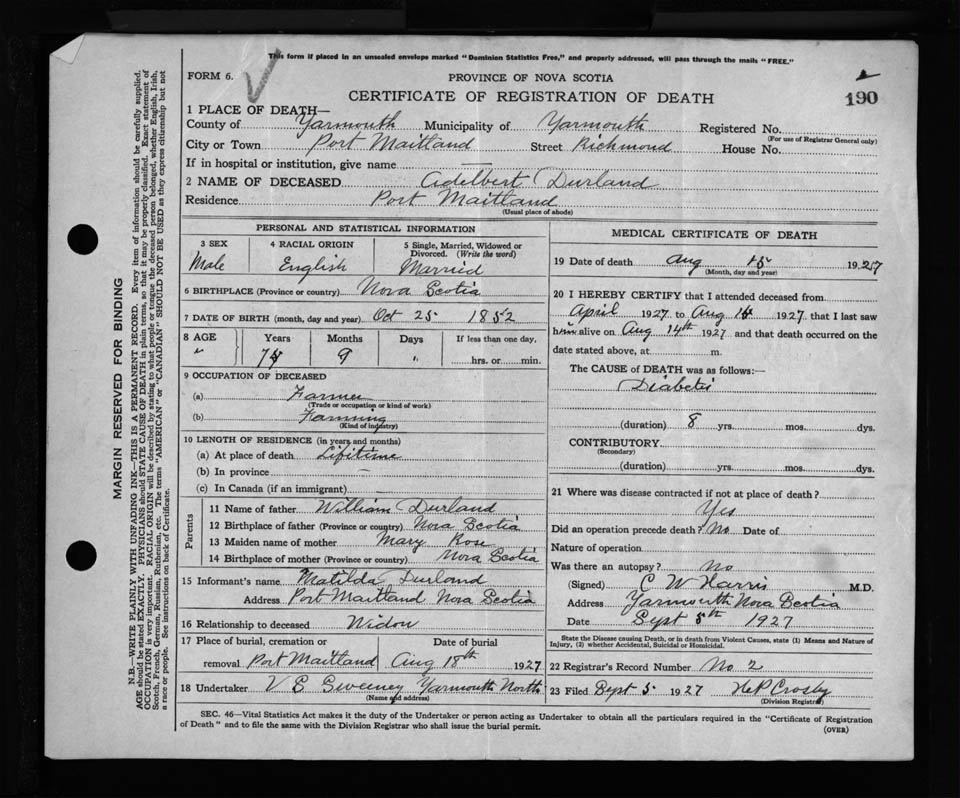 This form if placed in an unsealed envelope marked "Dominion Statistics Free," and properly addressed, will pass through the mails "FREE."
FORM 6.
PROVINCE OF NOVA SCOTIA
CERTIFICATE OF REGISTRATION OF DEATH
190
1 PLACE OF DEATH—
County of Yarmouth Municipality of Yarmouth Registered No.
(For use of Registrar General only)
City or Town Port Maitland Street Richmond House No.
If in hospital or institution, give name —
2 NAME OF DECEASED Adelbert Durland
Residence Port Maitland
(Usual place of abode)
PERSONAL AND STATISTICAL INFORMATION
3 SEX 4 RACIAL ORIGIN 5 Single, Married, Widowed or Divorced. (Write the word)
Male English Married
6 BIRTHPLACE (Province or country) Nova Scotia
7 DATE OF BIRTH (month, day and year) Oct 25 1852
8 AGE Years Months Days If less than one day,
" 74 9 " hrs. or min.
9 OCCUPATION OF DECEASED
(a) Farmer
(Trade or occupation or kind of work)
(b) Farming
(Kind of industry)
10 LENGTH OF RESIDENCE (in years and months)
(a) At place of death Lifetime
(b) In province —
(c) In Canada (if an immigrant)
Parents
11 Name of father William Durland
12 Birthplace of father (Province or country) Nova Scotia
13 Maiden name of mother Mary Rose
14 Birthplace of mother (Province or country) Nova Scotia
15 Informant's name Matilda Durland
Address Port Maitland Nova Scotia
16 Relationship to deceased Widow
17 Place of burial, cremation or Date of burial
removal Port Maitland Aug 18th 1927
18 Undertaker V S Sweeney Yarmouth North
(Name and address)
MEDICAL CERTIFICATE OF DEATH
19 Date of death Aug 15 1927
(Month, day and year)
20 I HEREBY CERTIFY that I attended deceased from
April 1927 to Aug 1927, that I last saw
him alive on Aug 14th 1927 and that death occurred on the
date stated above, at m.
The CAUSE of DEATH was as follows:—
Diabetis
(duration) 8 yrs. mos. dys.
CONTRIBUTORY
(Secondary)
(duration) yrs. mos. dys.
21 Where was disease contracted if not at place of death?
Yes
Did an operation precede death? No Date of
Nature of operation
Was there an autopsy? No
(Signed) C W Harris M.D.
Address Yarmouth Nova Scotia
Date Sept 5th 1927
State the Disease causing Death, or in death from Violent Causes, state (1) Means and Nature of
Injury, (2) whether Accidental, Suicidal or Homicidal.
22 Registrar's Record Number No 2
23 Filed Sept 5 1927 H P Crosby
(Division Registrar)
SEC. 46—Vital Statistics Act makes it the duty of the Undertaker or person acting as Undertaker to obtain all the particulars required in the "Certificate of Registration
of Death" and to file the same with the Division Registrar who shall issue the burial permit.
(OVER)
MARGIN RESERVED FOR BINDING
N.B.—WRITE PLAINLY WITH UNFADING INK—THIS IS A PERMANENT RECORD. Every item of information should be carefully supplied.
AGE should be stated EXACTLY. PHYSICIANS should STATE CAUSE OF DEATH in plain terms, so that it may be properly classified. Exact statement of
OCCUPATION is very important. RACIAL ORIGIN will be described by stating to what people or tongue the deceased person belonged, whether English, Irish,
Scotch, French, German, Russian, Ruthenian, etc. The terms "AMERICAN" or "CANADIAN" SHOULD NOT BE USED as they express citizenship but not
a race or people. See instructions on back of Certificate.